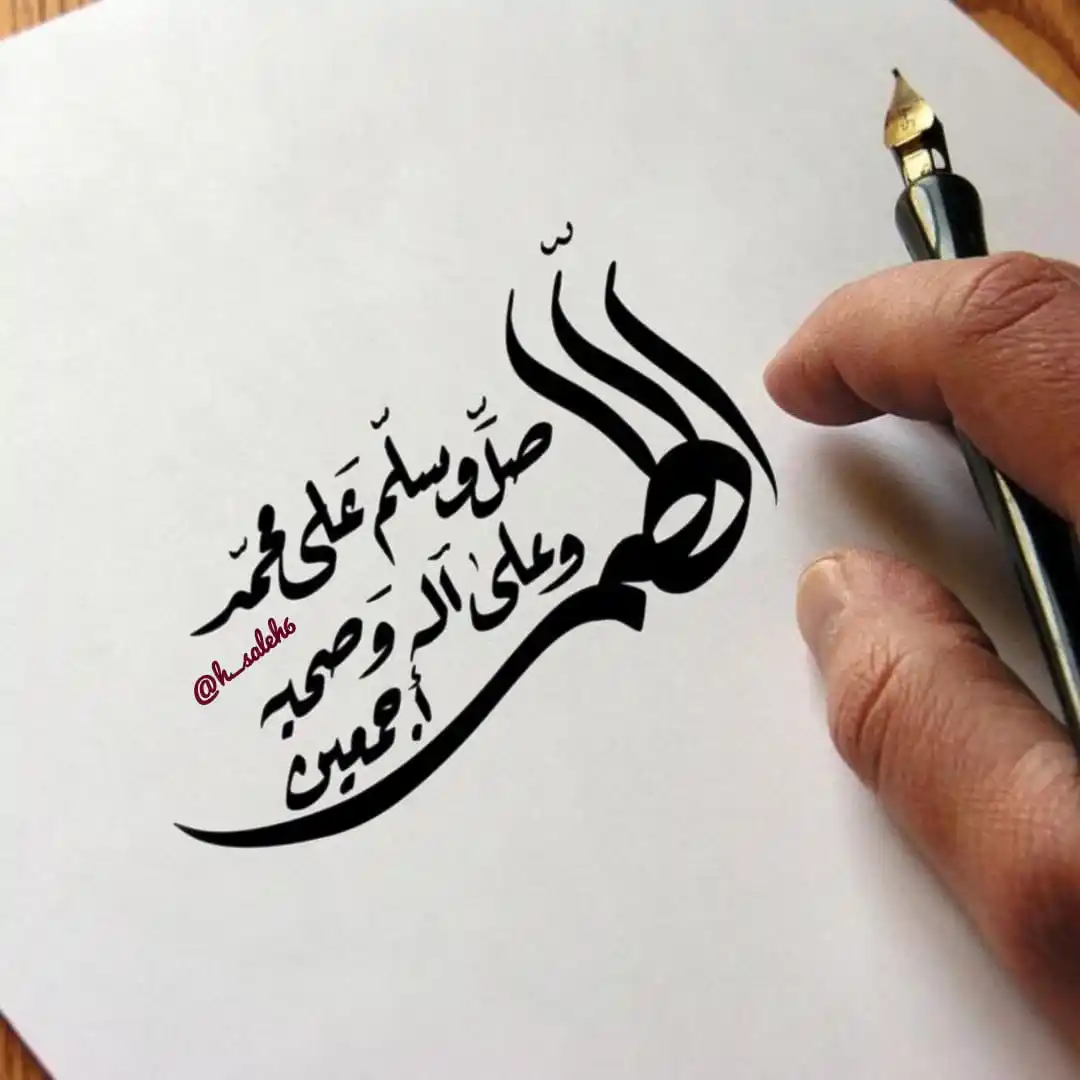 اللّهم
صلِّ وسلّم عَلى محمّد
وعلىٰ آله وَصحبه
أجمعين
@h_saleh6